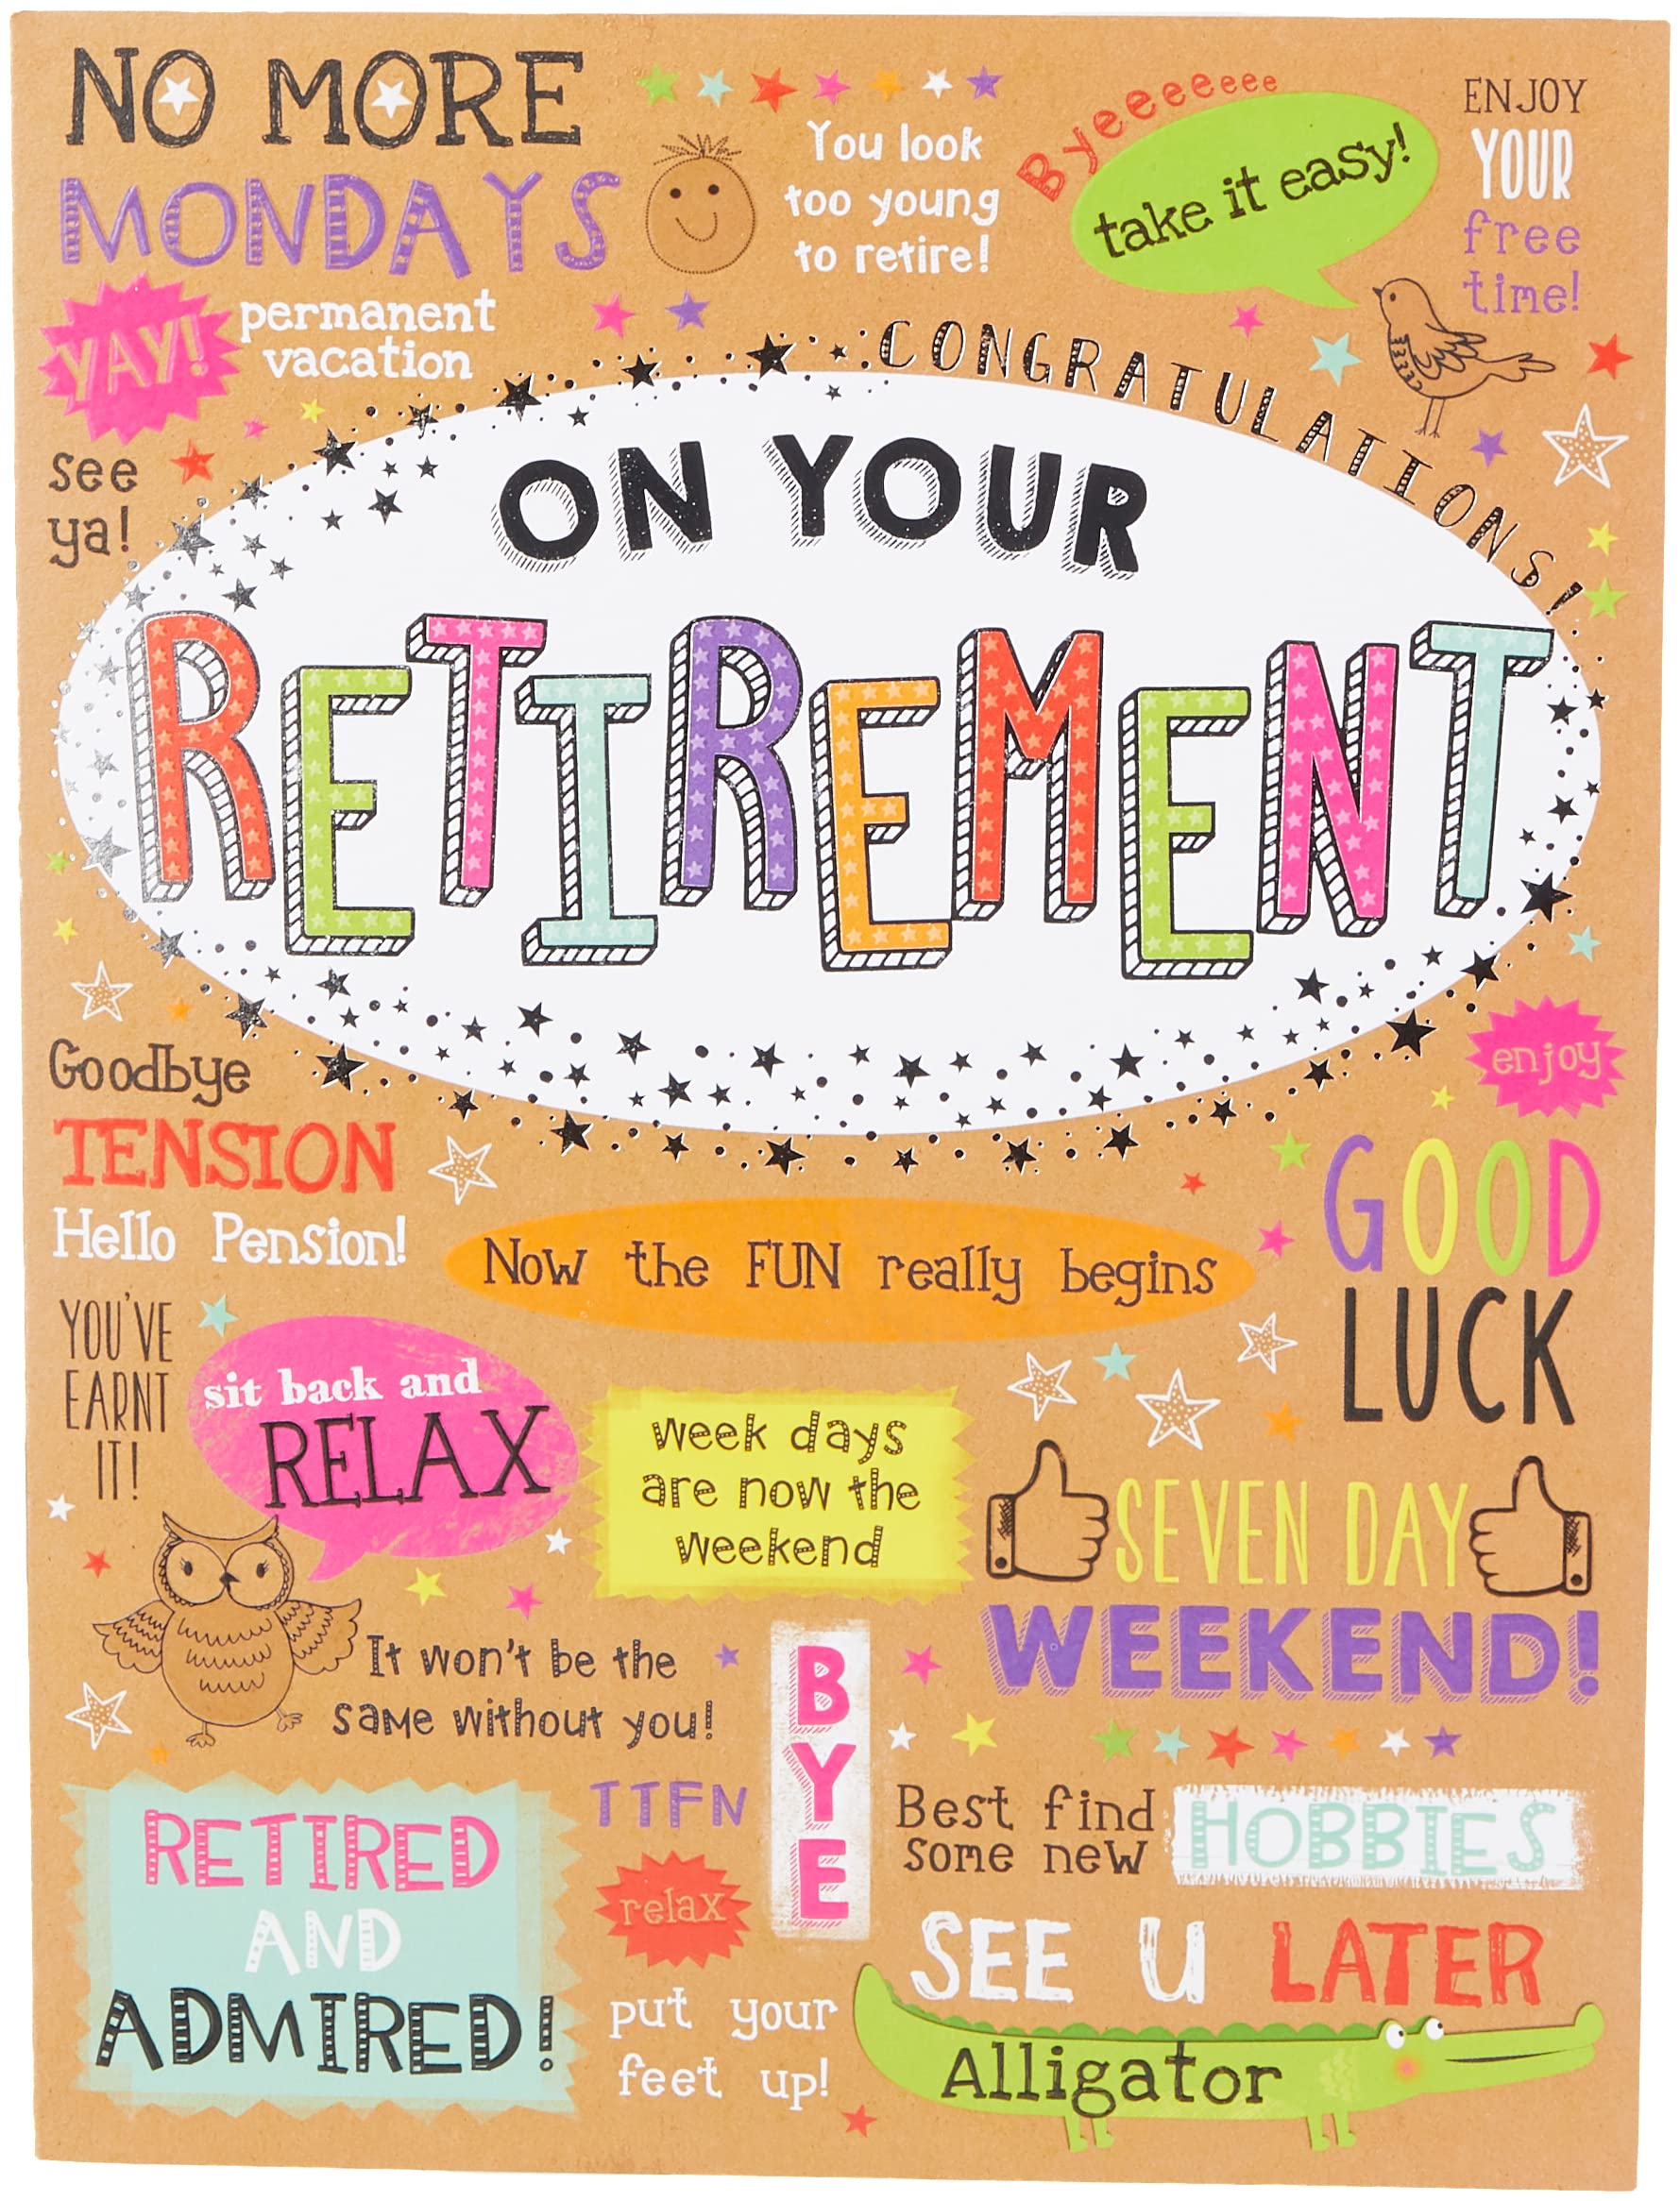 NO MORE
MONDAYS
You look
too young
to retire!
Byeeeeeee
take it easy!
ENJOY
YOUR
free
time!
YAY!
permanent
vacation
see
ya!
CONGRATULATIONS!
ON YOUR
RETIREMENT
Goodbye
TENSION
Hello Pension!
enjoy
GOOD
LUCK
Now the FUN really begins
YOU'VE
EARNT
IT!
sit back and
RELAX
Week days
are now the
weekend
SEVEN DAY
WEEKEND!
It won't be the
same without you!
BYE
RETIRED
AND
ADMIRED!
TTFN
relax
put your
feet up!
Best find
some new
HOBBIES
SEE U LATER
Alligator